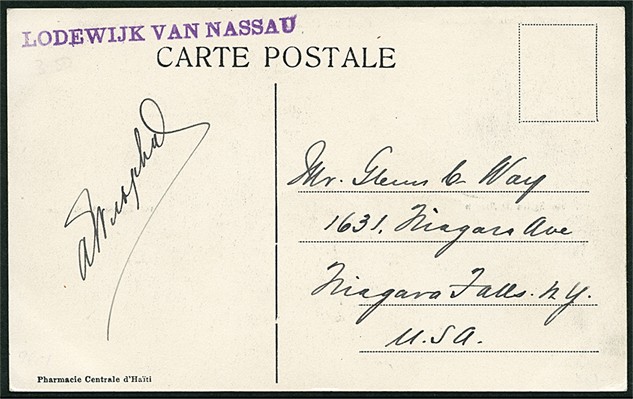 LODEWIJK VAN NASSAU
CARTE POSTALE
Mr. Glenn C. Way
1631, Niagara Ave
Niagara Falls. N.Y.
U.S.A.
Pharmacie Centrale d'Haïti